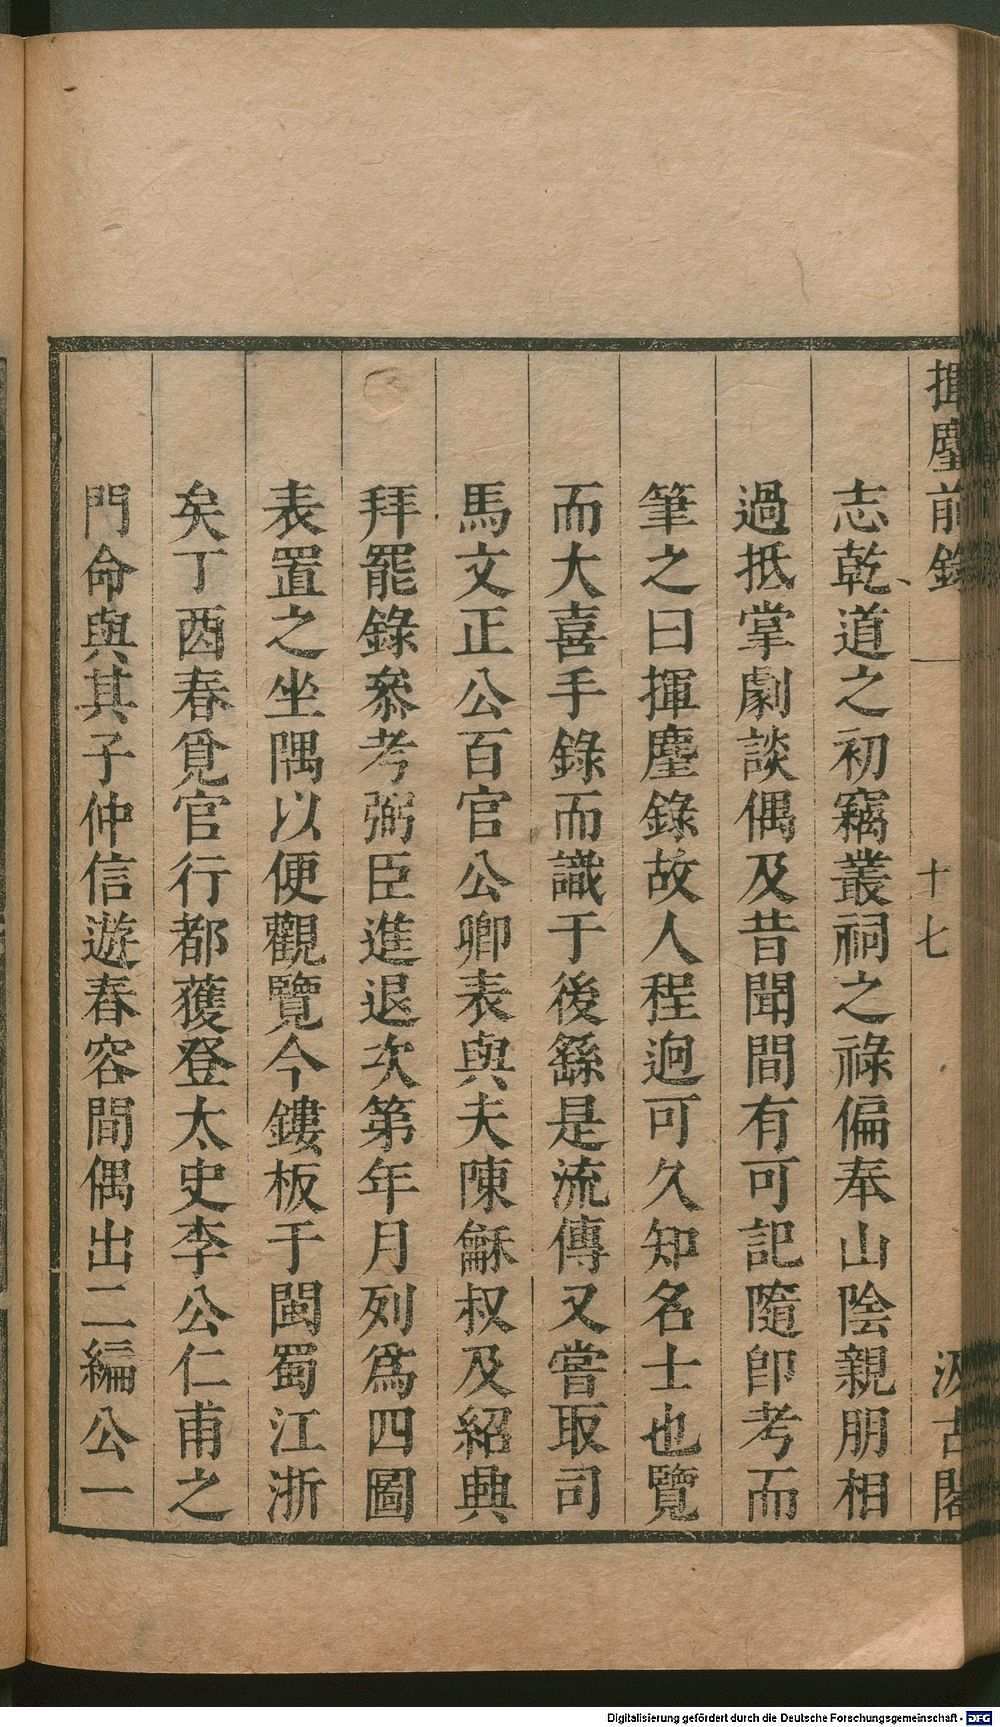 揮麈前錄
十七
汲古閣
志乾道之初竊叢祠之祿偏奉山陰親朋相
過抵掌劇談偶及昔聞間有可記隨卽考而
筆之曰揮麈錄故人程逈可久知名士也覽
而大喜手錄而識于後繇是流傳又嘗取司
馬文正公百官公卿表與夫陳龢叔及紹興
拜罷錄叅考弼臣進退次第年月列爲四圖
表置之坐隅以便觀覽今鏤板于閩蜀江浙
矣丁酉春覓官行都獲登太史李公仁甫之
門命與其子仲信遊春容間偶出二編公一
Digitalisierung gefördert durch die Deutsche Forschungsgemeinschaft - DFG